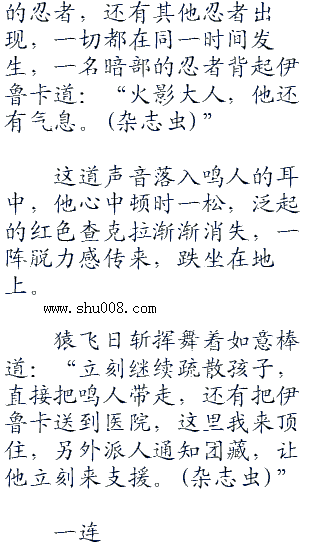 的忍者，还有其他忍者出
现，一切都在同一时间发
生，一名暗部的忍者背起伊
鲁卡道：“火影大人，他还
有气息。(杂志虫)”
这道声音落入鸣人的耳
中，他心中顿时一松，泛起
的红色查克拉渐渐消失，一
阵脱力感传来，跌坐在地
上。
www.shu008.com
猿飞日斩挥舞着如意棒
道：“立刻继续疏散孩子，
直接把鸣人带走，还有把伊
鲁卡送到医院，这里我来顶
住，另外派人通知团藏，让
他立刻来支援。(杂志虫)”
一连